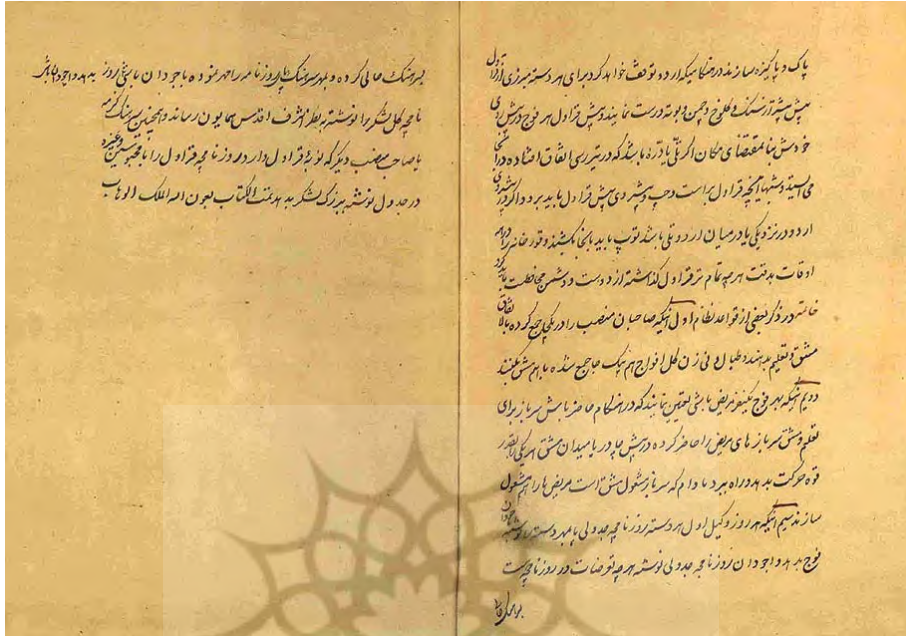 پاک و پاکیزه سازند در هنگامیکه اردو توقف خواهد کرد برای هر دسته مبرزی از قراول
پیش بیشه از سنگ و کلوخ و چمن و بوته درست نمایند و پیش قراول هر فوج در پیش روی
خودش بنا بمقتضای مکان اگر تلی یا دره باشد که در تیررسی اتفاق افتاده در آنجا
می ایستد و شبها آنچه قراول براست و چپ و پیش روی پیش قراول باید برود و اگر در پیش روی
اردو در نزدیکی یا در میان اردو تلی باشد توپ باید بانجا بکشند و قورخانه را در همه
اوقات بدقت هر چه تمام تر قراول گذاشته از دوست و دشمن محافظت باید کرد
خاتمه در ذکر بعضی از قواعد نظام اول اینکه صاحبان منصب را در یکجا جمع کرده بالاتفاق
مشق و تعلیم بدهند و طبال و نی زن کل افواج هم یک جا جمع شده با هم مشق بکنند
دویم اینکه بهر فوج یکنفر مریض باشی تعیین نمایند که در هنگام حاضر باش سرباز برای
تعلیم و مشق سرباز های مریض را حاضر کرده در پیش چادر یا میدان مشق هر یکی را بقدر
قوه حرکت بدهد و راه ببرد مادام که سرباز مشغول مشق است مریض ها را هم مشغول
سازند سیم اینکه هر روز وکیل اول هر دسته روزنامچه جدولی بامهر دسته نوشته
فوج بدهد و اجودان روزنامچه جدولی نوشته هر چه توضیحات در روزنامچه است
بر اصل
بسرهنگ حالی کرده و بمهر سرهنگ پای روزنامه را مهر نموده با جودان باشی روز بدهد و اجودان باشی
نامچه کل لشکر را نوشته بنظر اشرف اقدس همایون رساند و همچنین سرهنگ
یا صاحب منصب دیگر که نوبه قراول دارد روزنامچه قراول را با محبوسین و غیره
در جدول نوشته ببزرگ لشکر بدهد تمت الکتاب بعون الله الملک الوهاب